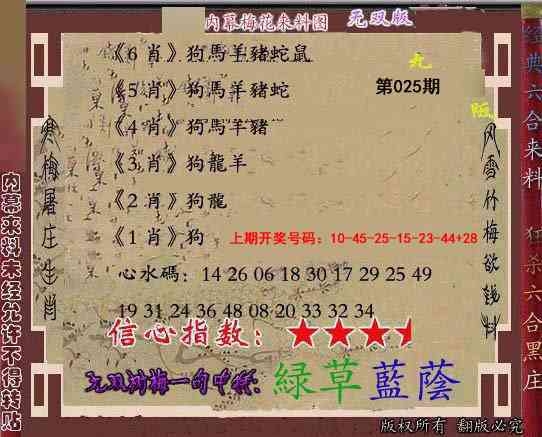 内幕梅花来料图 无双版
《6 肖》狗馬羊豬蛇鼠
《5 肖》狗馬羊豬蛇
第025期
《4 肖》狗馬羊豬
《3 肖》狗龍羊
《2 肖》狗龍
《1 肖》狗
上期开奖号码：10-45-25-15-23-44+28
心水碼：14 26 06 18 30 17 29 25 49
19 31 24 36 48 08 20 33 32 34
信心指数：★★★
一的中特：緑草藍蔭
版权所有 翻版必究
寒梅屠庄生肖
风雪竹梅欲钱料
内幕来料未经允许不得转贴
经典六合来料
狂杀六合黑庄